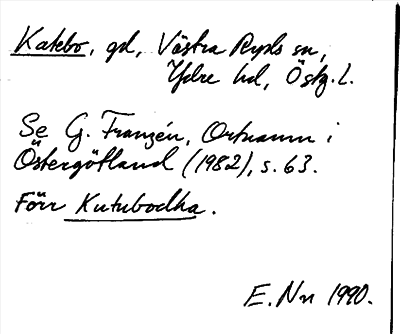 Katebo, gd, Västra Ryds sn,
Ydre hd, Östg.l.
Se G. Franzén, Ortnamn i
Östergötland (1982), s. 63.
Förr Kutubodha.
E. Nn 1990.